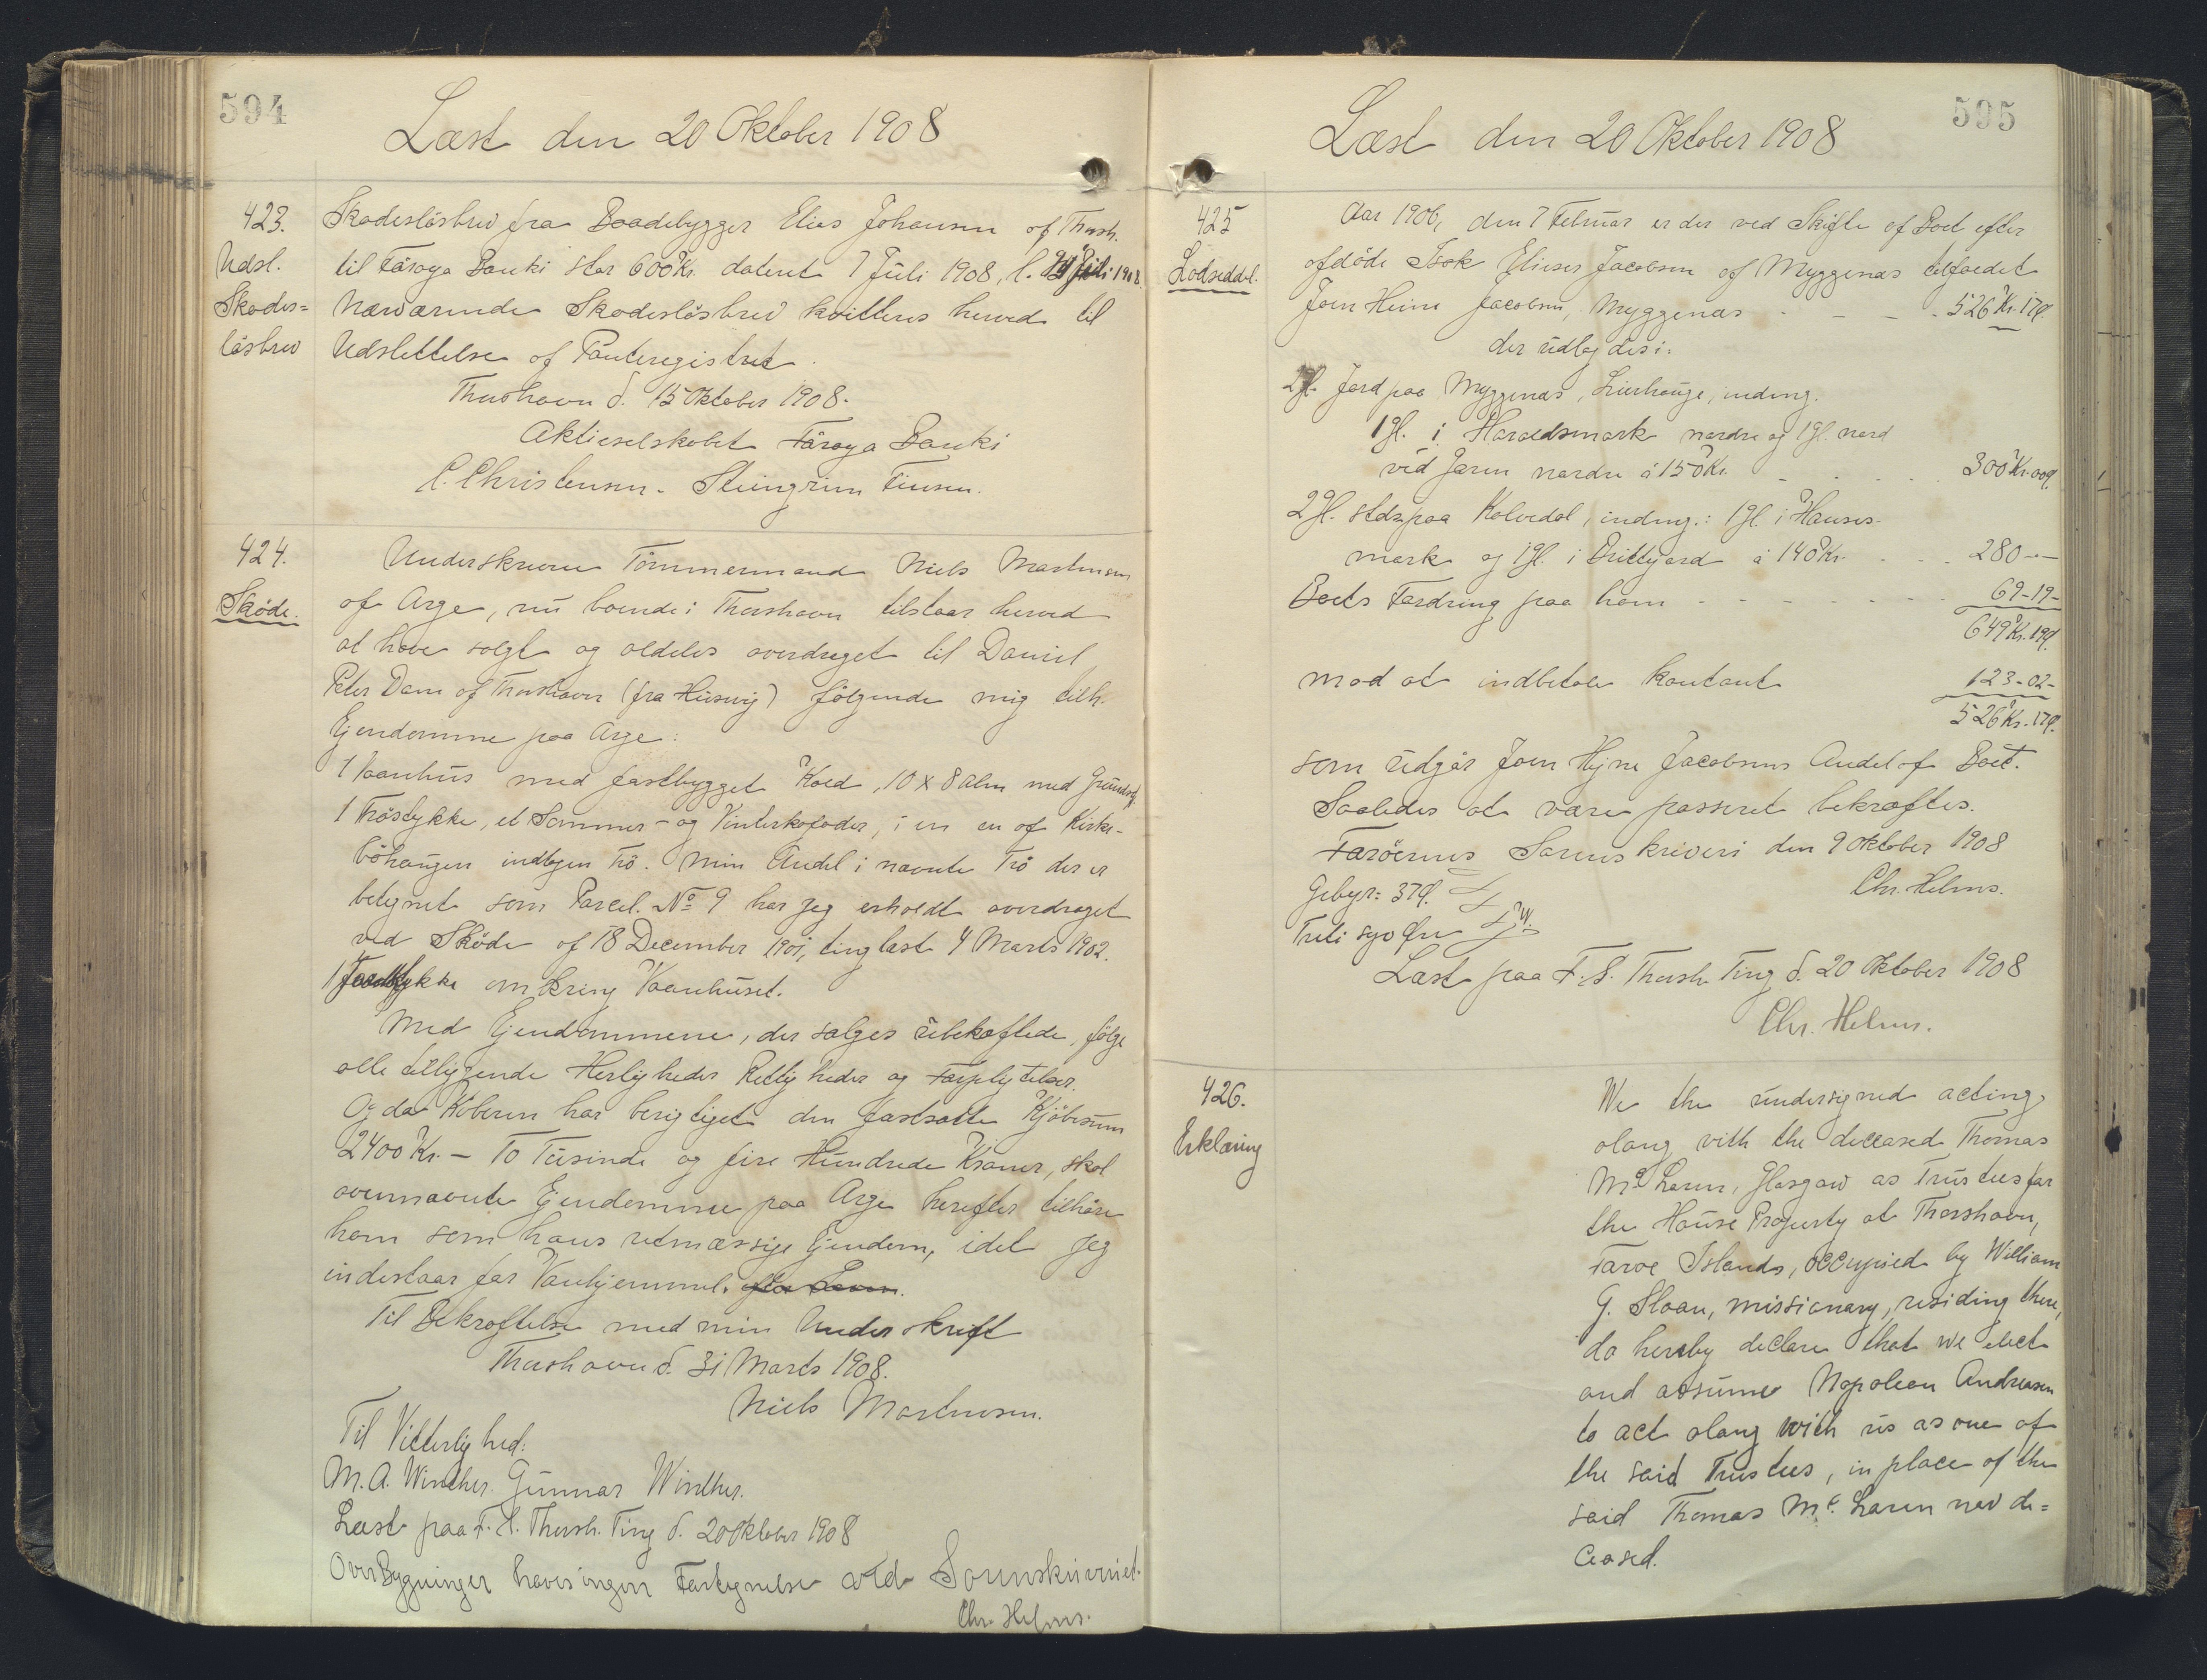 594
Læst den 20 Oktober 1908
423.
Udsl.
Skades=
løsbrev
Skadesløsbrev fra Baadebygger Elias Johansen af Thorsh.
til Färoya Banki stor 600 Kr. dateret 7 Juli 1908, l. Juli 1908.
Nærværende Skadesløsbrev kvitteres herved til
Udslettelse af Panteregistret.
Thorshavn d. 15 Oktober 1908.
Aktieselskabet Färoya Banki
C. Christensen. Steingrim Finsen.
424.
Skøde.
Underskrevne Tømmermand Niels Martinsen
af Arge, nu boende i Thorshavn tilstaar herved
at have solgt og aldeles overdraget til Daniel
Peter Dam af Thorshavn (fra Husevig) følgende mig tilh.
Ejendomme paa Arge:
1 Vaanhus med fastbygget Koed, 10 x 8 alen med Grundst.
1 Trøstykke, et Sommer- og Vinterkofoder, i en en af Kirke-
bøhaugen indtagen Trø. Min Andel i nævnte Trø der er
betegnet som Parcel. No 9 har jeg erholdt overdraget
ved Skøde af 18 December 1901, tinglæst 4 Marts 1902.
1 Jordstykke omkring Vaanhuset.
Med Ejendommene, der sælges ubehæftede, følge
alle tilliggende Herligheder Rettigheder og Forpligtelser.
Og da Køberen har berigtiget den fastsatte Kjøbesum
2400 Kr. - To Tusinde og fire Hundrede Kroner, skal
ovennævnte Ejendomme paa Arge herefter tilhøre
ham som hans retmæssige Ejendom, idet jeg
indestaar for Vanhjemmel. efter Loven.
Til Bekræftelse med min Underskrift
Thorshavn d. 31 Marts 1908.
Niels Martinsen.
Til Vitterlighed:
M. A. Winther. Gunnar Winther.
Læst paa F. S. Thorsh. Ting d. 20 Oktober 1908
Over Bygninger haves ingen Fortegnelse ved Sorenskriveriet.
Chr. Helms.
595
Læst den 20 Oktober 1908
425
Lodseddel.
Aar 1906, den 7 Februar er der ved Skifte af Boet efter
afdøde Isak Elieser Jacobsen af Myggenæs tilfaldet
Joen Heine Jacobsen, Myggenæs - - - 526 Kr. 17 Ø.
der udlagdes i:
2 gl. Jord paa Myggenæs, Lierhauge, indeng.
1 gl. i Haraldsmark nordre og 1 gl. nord
ved Jaren nordre á 150 Kr. - - - 300 Kr. 00 Ø.
2 gl. stds. paa Kolvedal, indeng.: 1 gl. i Hanses-
mark og 1 gl. i Drittjord á 140 Kr. - - - 280 - -
Boets Fordring paa ham - - - - - 69 - 19 -
649 Kr. 19 Ø.
mod at indbetale kontant 123 - 02 -
526 Kr. 17 Ø.
som udgør Joen Hejne Jacobsens Andel af Boet.
Saaledes at være passeret bekræftes.
Færøernes Sorenskriveri den 9 Oktober 1908
Chr. Helms.
Gebyr: 37 Ø.
Treti syv Øre
Læst paa F. S. Thorsh. Ting d. 20 Oktober 1908
Chr. Helms.
426.
Erklæring
We the undersigned acting
along with the deceased Thomas
Mc Laren, Glasgow as Trustees for
the House Property at Thorshavn,
Faroe Islands, occupied by William
G. Sloan, missionary, residing there,
do hereby declare that we elect
and assume Napoleon Andreasen
to act along with us as one of
the said Trustees, in place of the
said Thomas Mc. Laren now de=
ceased.